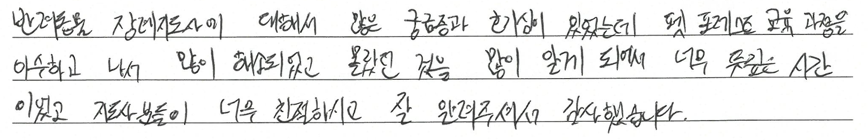 반려동물 장례지도사에 대해서 많은 궁금증과 호기심이 있었는데 펫 포레스트 교육 과정을
이수하고 나서 많이 해소되었고 몰랐던 것을 많이 알게 되어서 너무 뜻깊은 시간
이었고 지도사분들이 너무 친절하시고 잘 알려주셔서 감사했습니다.